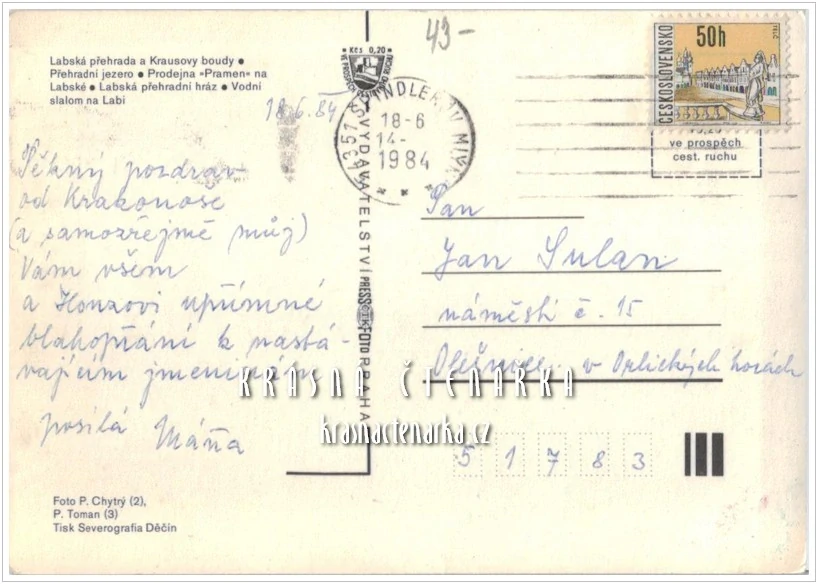 43-
Labská přehrada a Krausovy boudy •
Přehradní jezero • Prodejna »Pramen« na
Labské • Labská přehradní hráz • Vodní
slalom na Labi
18.6.84
Pěkný pozdrav
od Krakonoše
(a samozřejmě můj)
Vám všem
a Honzovi upřímné
blahopřání k nastá-
vajícím jmeninám
posílá Máňa
Foto P. Chytrý (2),
P. Toman (3)
Tisk Severografia Děčín
Kčs 0,20
VE PROSPĚCH CESTOVNÍHO RUCHU
VYDAVATELSTVÍ PRESSFOTO PRAHA
ČTK
54351 ŠPINDLERŮV MLÝN
18-6
14-
1984
ČESKOSLOVENSKO
50h
TELČ
ve prospěch
cest. ruchu
Pan
Jan Sulan
náměstí č. 15
Olešnice v Orlických horách
51783
KRÁSNÁ ČTENÁŘKA
krasnactenarka.cz